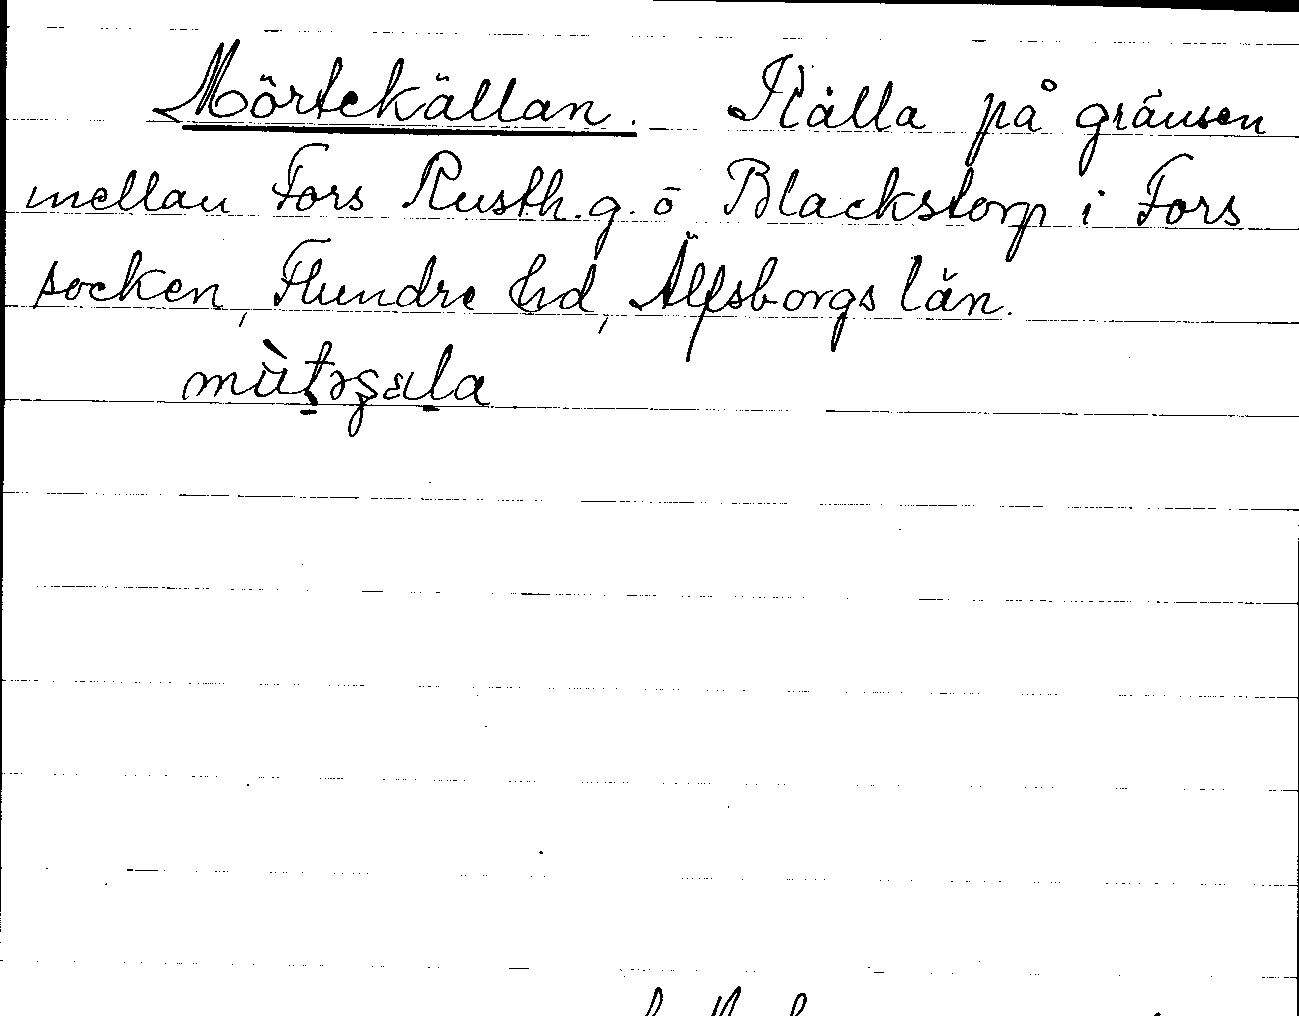 Mörtekällan. Källa på gränsen
mellan Fors Rusth.g. o Blackstorp i Fors
socken, Flundre hd, Älfsborgs län.